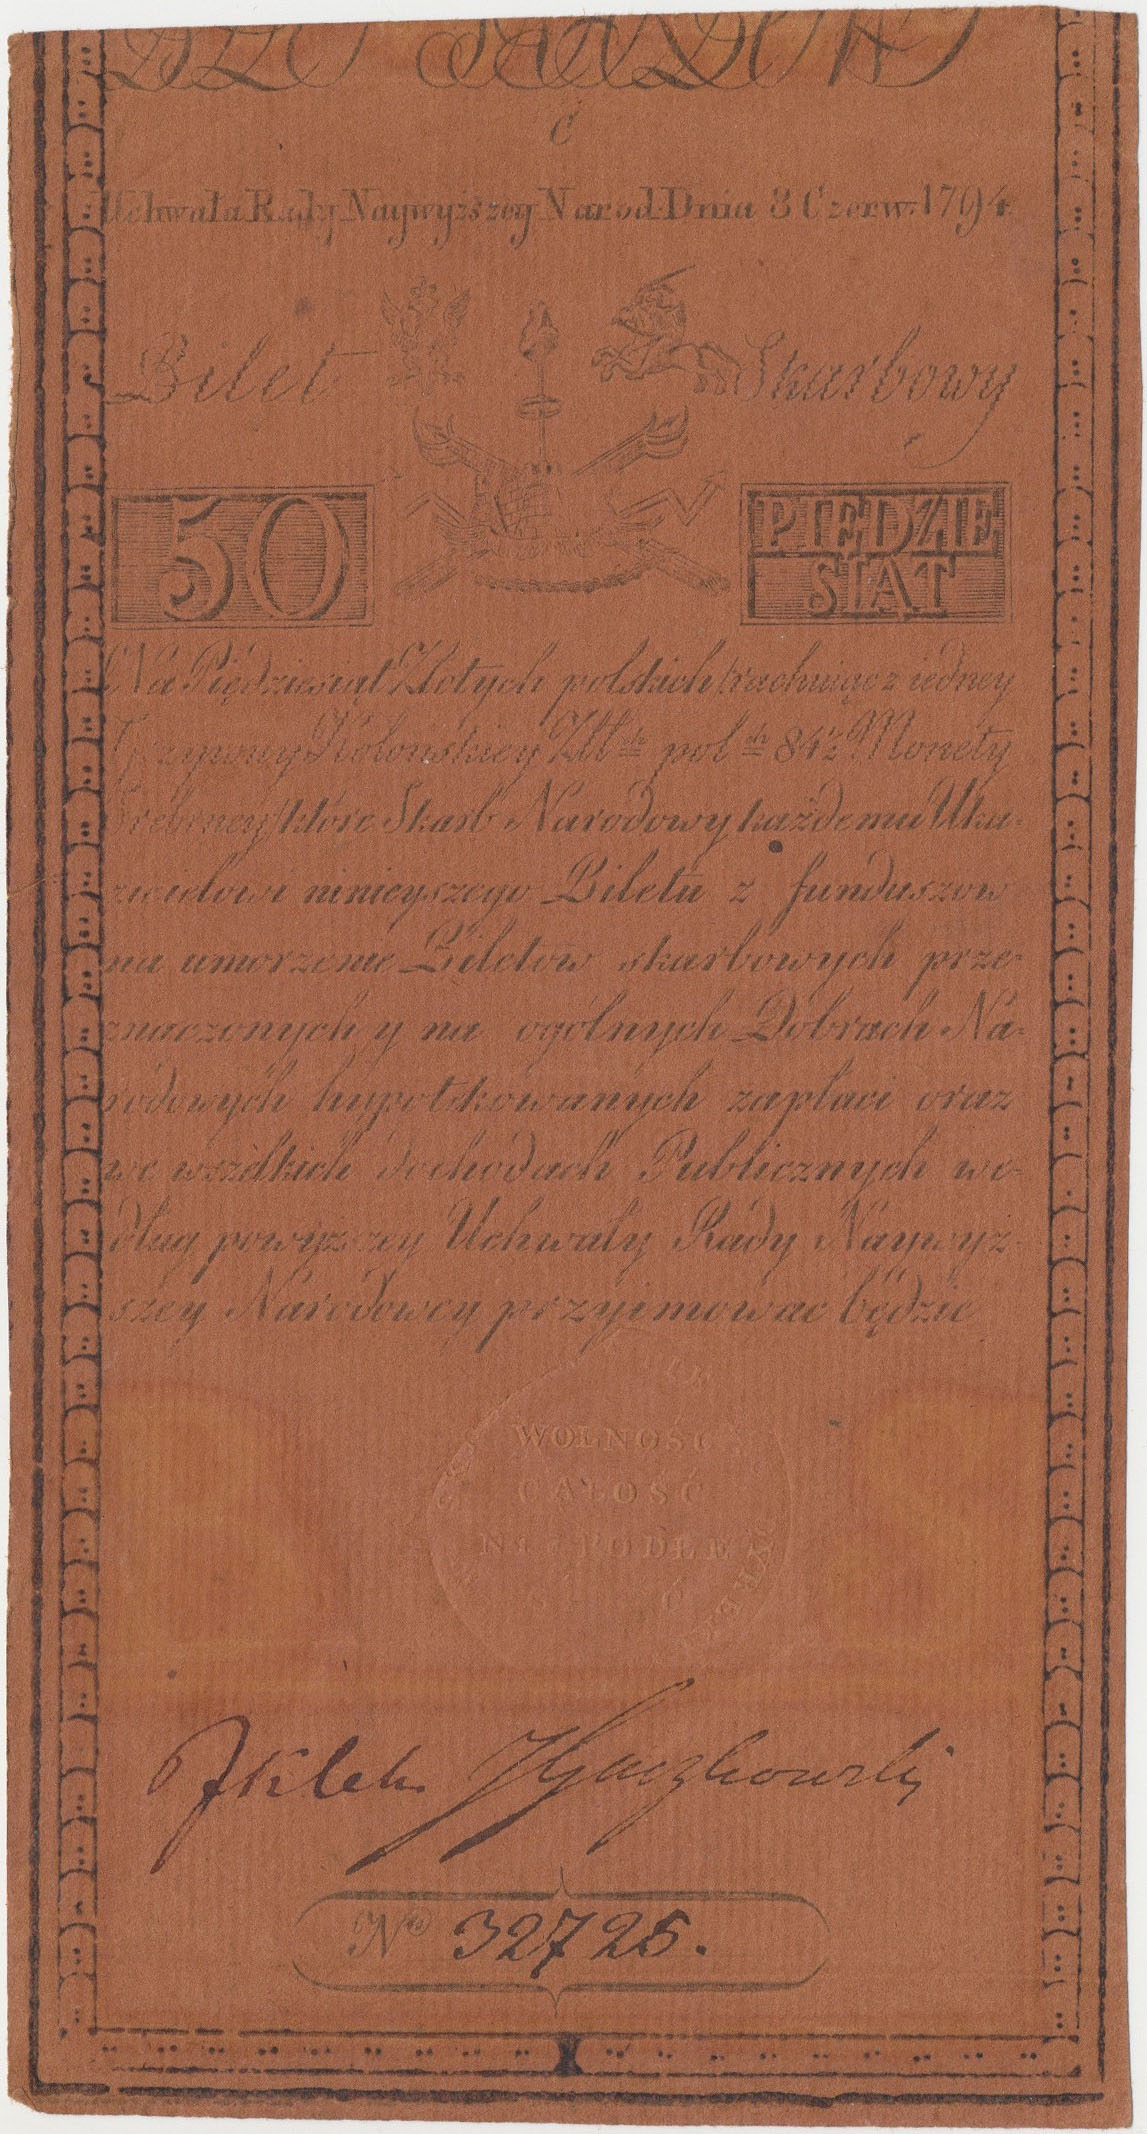 C
Uchwała Rady Naywyższey Narod: Dnia 8 Czerw: 1794
Bilet Skarbowy
50 PIĘDZIE
SIĄT
Na Pięдziesiąt Złotych polskich /rachuiąc z iedney
Grzywny Kolońskiey Złł ch pol ch 84½ Monety
Srebrney/ które Skarb Narodowy każdemu Uka-
zicielowi ninieyszego Biletu z funduszow
na umorzenie Biletow skarbowych prze-
znaczonych y na ogólnych Dobrach Na-
rodowych hypotekowanych zapłaci oraz
we wszelkich dochodach Publicznych we-
dług powyższey Uchwały Rady Naywyż-
szey Narodowey przyimować będzie
WOLNOŚĆ
CAŁOŚĆ
NIEPODLE
Nro 32725.